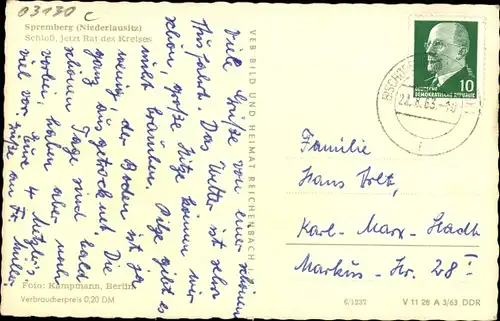 03130 c
Spremberg (Niederlausitz)
Schloß, jetzt Rat des Kreises
Viele Grüße von einer schönen
Fahrt. Das Wetter ist sehr
schön, große Hitze können wir
nicht brauchen. Pilze gibt es
wenig, der Boden ist ja
ganz ausgetrocknet. Die
schönen Tage sind bald
vorbei, haben aber noch
viel vor. Eure 4 Metzler's
Grüße an Fr. Müller
Foto: Kampmann, Berlin
Verbraucherpreis 0,20 DM
VEB BILD UND HEIMAT REICHENBACH I. V.
10
DEUTSCHE
DEMOKRATISCHE REPUBLIK
22.8.63-10
Familie
Hans
Karl-Marx-Stadt
Markus-Str. 28 I
6/1237
V 11 28 A 3/63 DDR